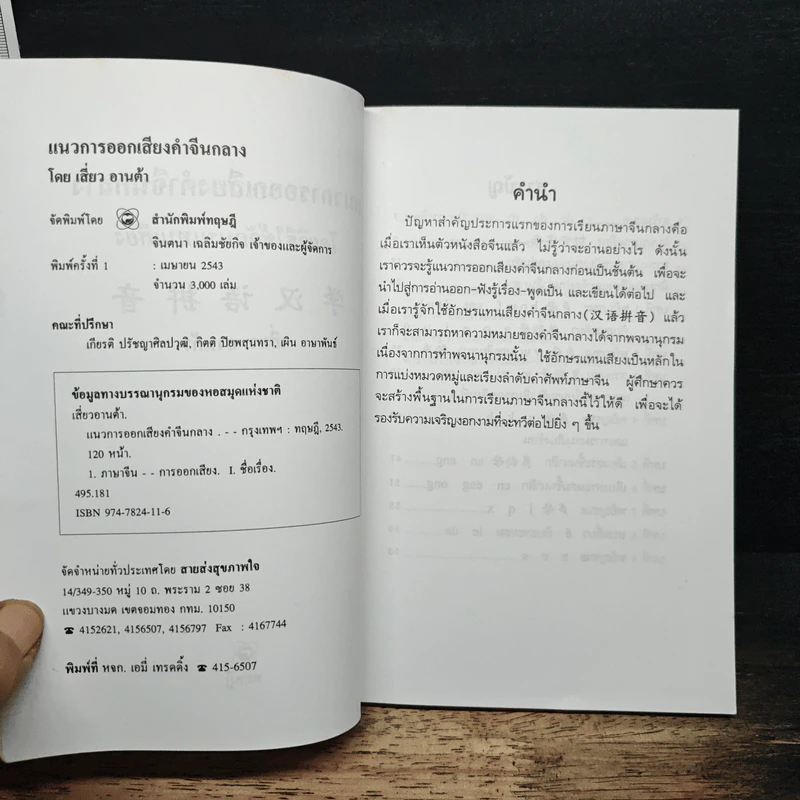 แนวการออกเสียงคำจีนกลาง
โดย เสี่ยว อานต้า
จัดพิมพ์โดย สำนักพิมพ์ทฤษฎี
จินตนา เฉลิมชัยกิจ เจ้าของและผู้จัดการ
พิมพ์ครั้งที่ 1 : เมษายน 2543
จำนวน 3,000 เล่ม
คณะที่ปรึกษา
เกียรติ ปรัชญาศิลปวุฒิ, กิตติ ปิยพสุนทรา, เผิน อาษาพันธ์
ข้อมูลทางบรรณานุกรมของหอสมุดแห่งชาติ
เสี่ยวอานต้า.
แนวการออกเสียงคำจีนกลาง . - - กรุงเทพฯ : ทฤษฎี, 2543.
120 หน้า.
1. ภาษาจีน - - การออกเสียง. I. ชื่อเรื่อง.
495.181
ISBN 974-7824-11-6
จัดจำหน่ายทั่วประเทศโดย สายส่งสุขภาพใจ
14/349-350 หมู่ 10 ถ. พระราม 2 ซอย 38
แขวงบางมด เขตจอมทอง กทม. 10150
☎ 4152621, 4156507, 4156797 Fax : 4167744
พิมพ์ที่ หจก. เอมี่ เทรดดิ้ง ☎ 415-6507
คำนำ
ปัญหาสำคัญประการแรกของการเรียนภาษาจีนกลางคือ
เมื่อเราเห็นตัวหนังสือจีนแล้ว ไม่รู้ว่าจะอ่านอย่างไร ดังนั้น
เราควรจะรู้แนวการออกเสียงคำจีนกลางก่อนเป็นขั้นต้น เพื่อจะ
นำไปสู่การอ่านออก-ฟังรู้เรื่อง-พูดเป็น และเขียนได้ต่อไป และ
เมื่อเรารู้จักใช้อักษรแทนเสียงคำจีนกลาง(汉语拼音) แล้ว
เราก็จะสามารถหาความหมายของคำจีนกลางได้จากพจนานุกรม
เนื่องจากการทำพจนานุกรมนั้น ใช้อักษรแทนเสียงเป็นหลักใน
การแบ่งหมวดหมู่และเรียงลำดับคำศัพท์ภาษาจีน ผู้ศึกษาควร
จะสร้างพื้นฐานในการเรียนภาษาจีนกลางนี้ไว้ให้ดี เพื่อจะได้
รองรับความเจริญงอกงามที่จะทวีต่อไปยิ่ง ๆ ขึ้น